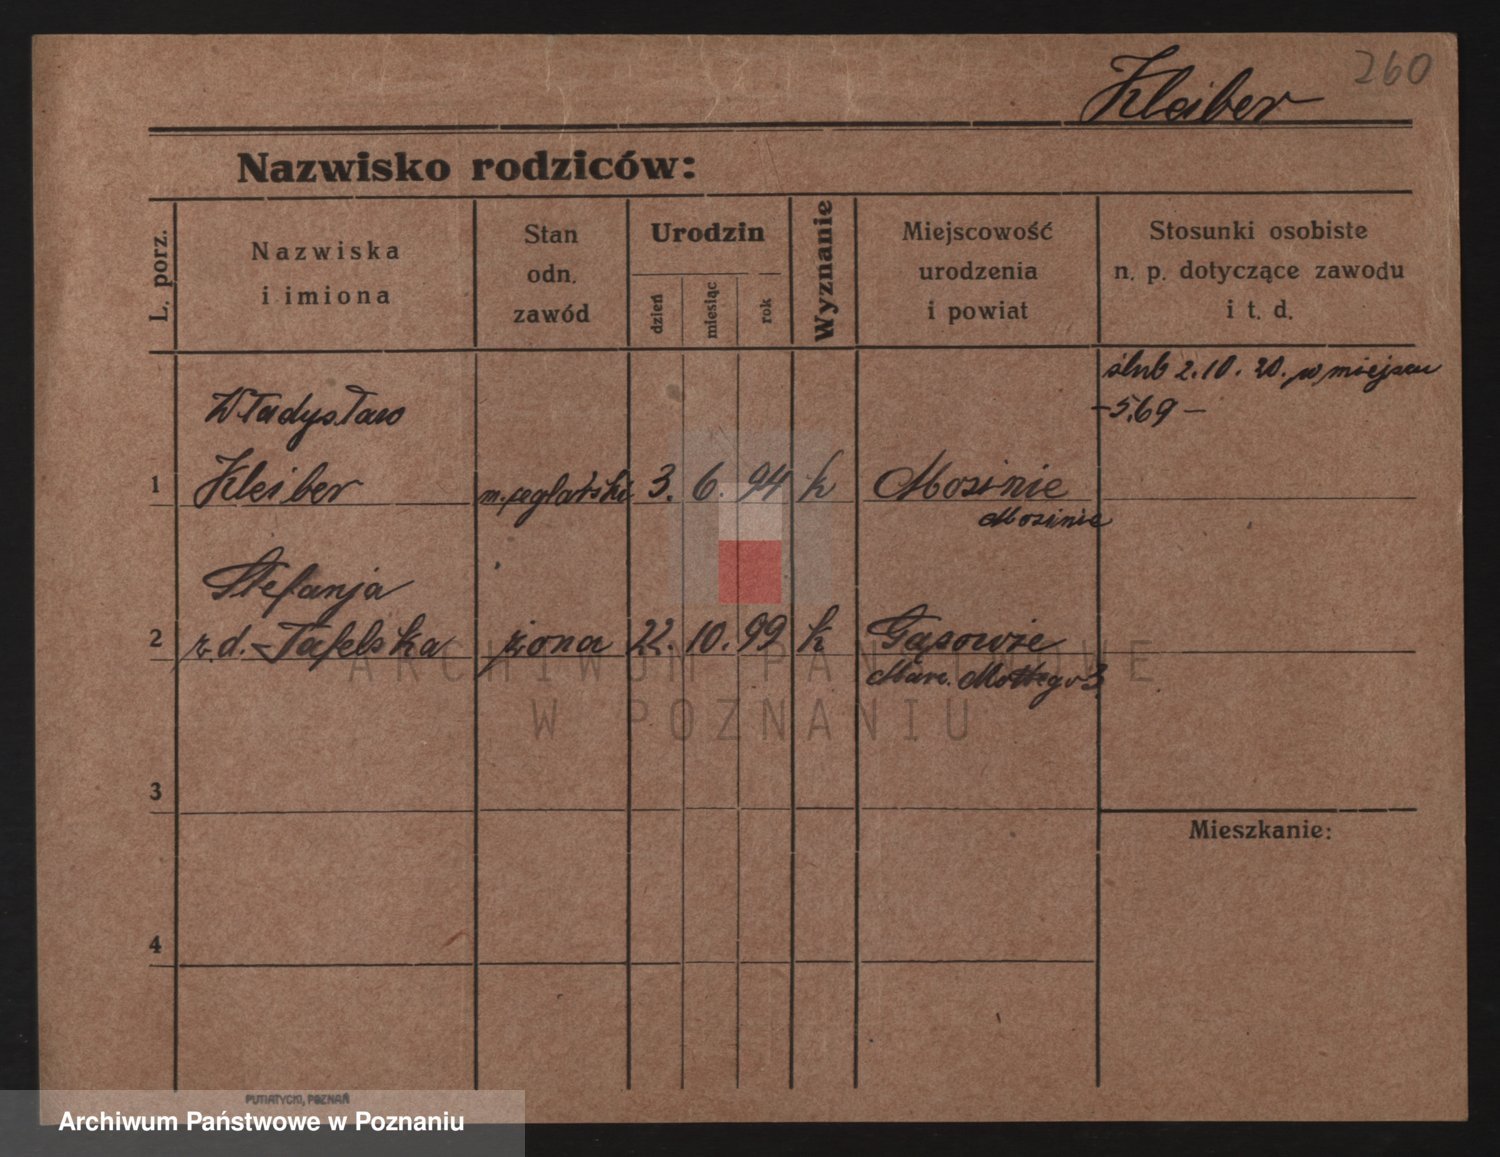 260
Kleiber
Nazwisko rodziców:
L. porz.
Nazwiska
i imiona
Stan
odn.
zawód
Urodzin
dzień
miesiąc
rok
Wyznanie
Miejscowość
urodzenia
i powiat
Stosunki osobiste
n. p. dotyczące zawodu
i t. d.
ślub 2.10.20. w miejscu
-569-
Władysław
1 Kleiber m. ceglarski 3. 6. 94 k Mosinie
Mosinie
Stefanja
2 z.d.-Tafelska żona 22. 10. 99 k Gąsowie
Marc. Mottego 3
3
Mieszkanie:
4
PUTIATYCKI, POZNAŃ
ARCHIWUM PAŃSTWOWE
W POZNANIU
Archiwum Państwowe w Poznaniu